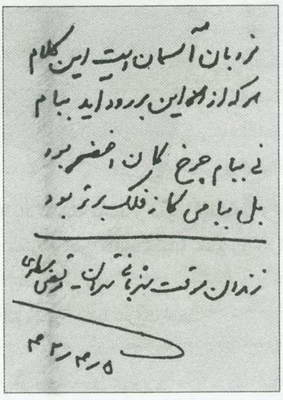 نردبان آسمان است این کلام
هر که از این بر رود اید ببام
نی ببام چرخ کان اخضر بود
بل ببامی کاز فلک برتر بود
زندان موقت شهربانی تهران -